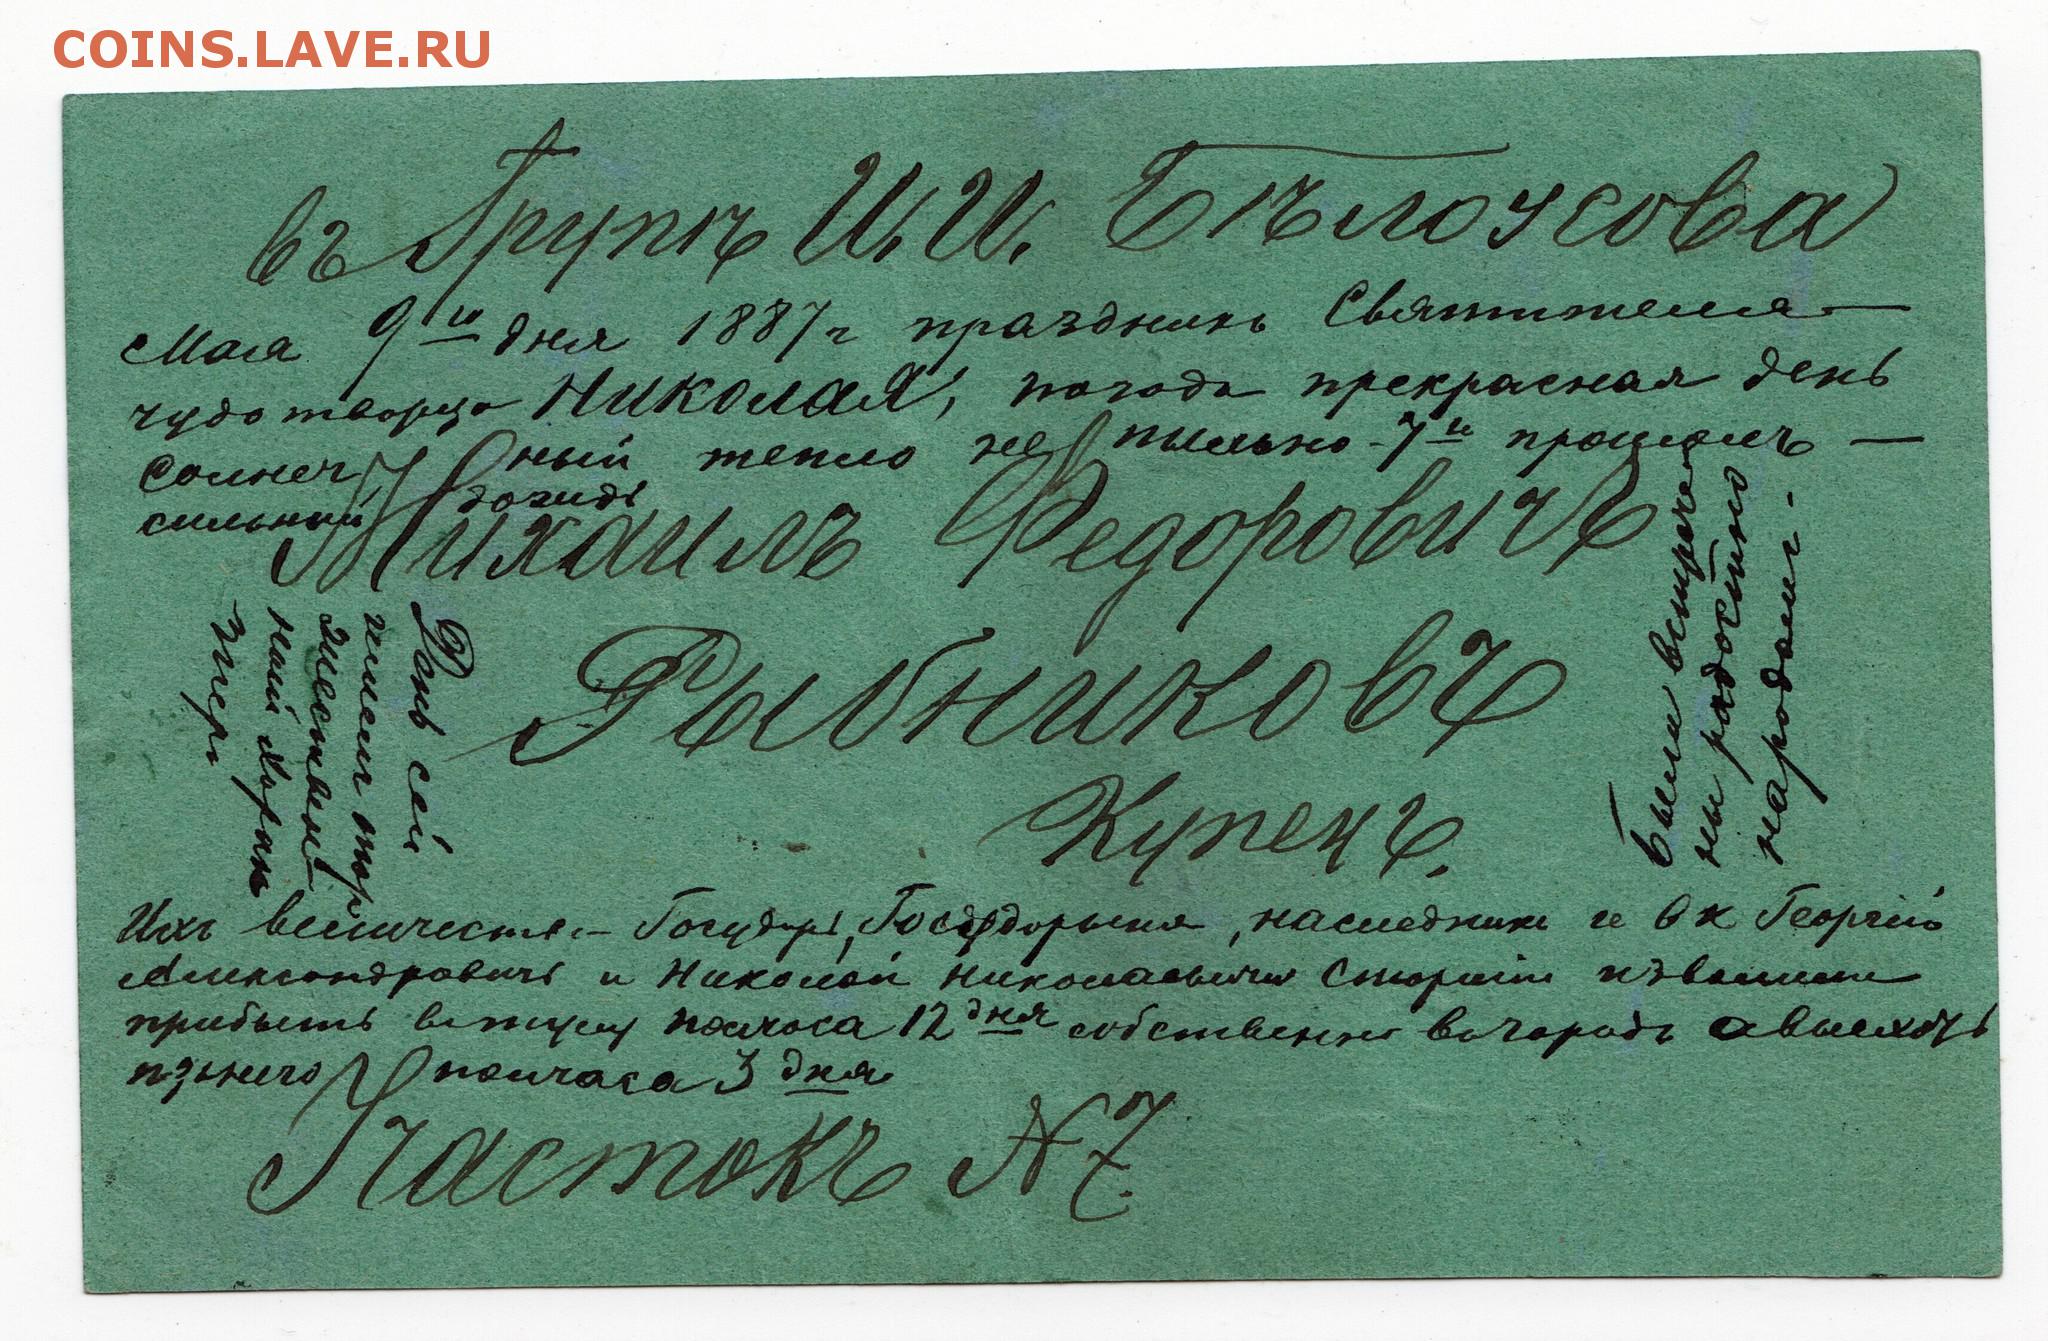 COINS.LAVE.RU
въ Групѣ И. И. Бѣлоусова
Мая 9го дня 1887г праздникъ Святителя —
чудотворца Николая, погода прекрасная день
солнеч ный тепло не пыльно 7го прошолъ —
сильный дождь
Михаилъ Федоровичъ
Рыбниковъ
Купецъ.
День сей
жественный
Были встрече
ны радостно
народомъ.
Ихъ величества Государь, Государыня, наследникъ и В К Георгий
Александровичъ и Николай Николаевичъ Старший изволили
прибыть в полчаса 12 дня собственно въ городъ а выехать
изънего полчаса 3 дня
Участокъ № 7.